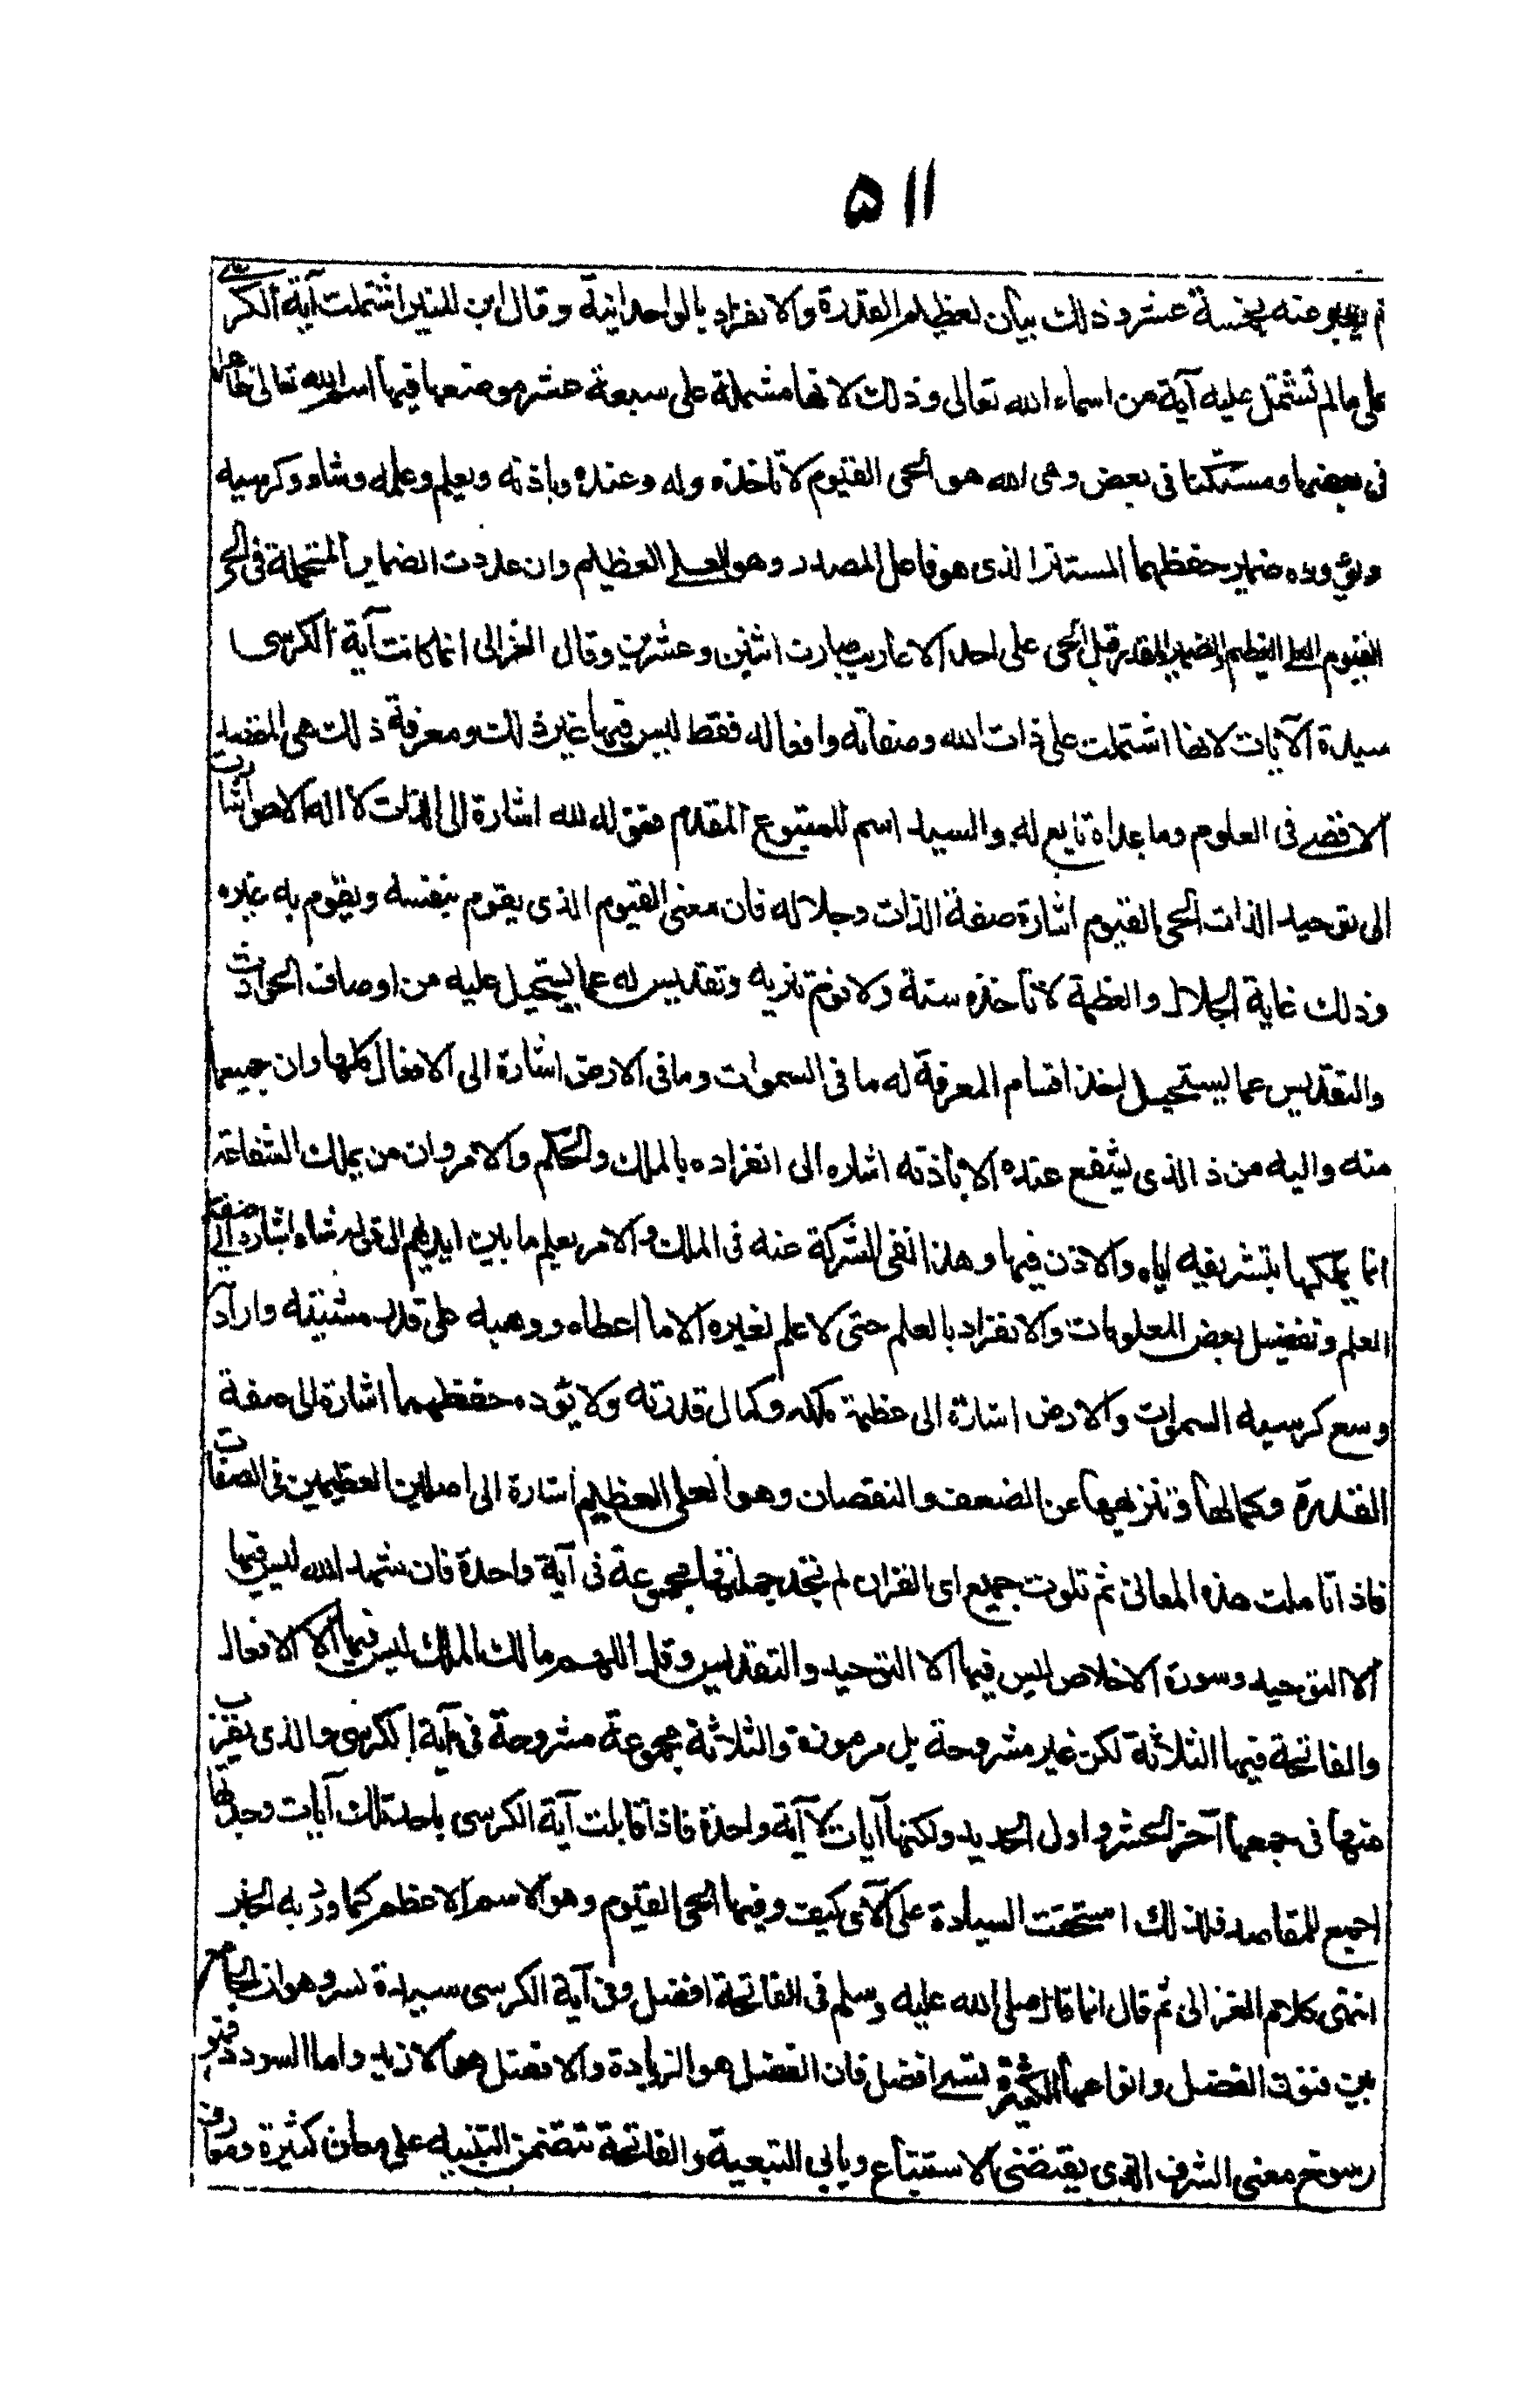 ۵۱۱
ثم يخبر عنه بخمسة عشر وذلك بيان لعظيم القدرة والانفراد بالواحدانية وقال ابن المنير اشتملت آية الكرسي
على ما لم تشتمل عليه آية من اسماء الله تعالى وذلك لانها مشتملة على سبعة عشر موضعها فيها اسم الله تعالى ظاهرا
في بعضها ومستكنا في بعض وهى الله هو الحى القيوم لا تاخذه وله وعنده وباذنه ويعلم وعلمه وشاء وكرسيه
ويؤوده ضمير حفظهما المستتر الذى هو فاعل المصدر وهو العلى العظيم وان عددت الضماير المتحملة فى الحى
القيوم العلى العظيم والضمير المقدر قبل الحى على احد الاعاريب صارت اثنين وعشرين وقال الغزالى انما كانت آية الكرسى
سيدة الآيات لانها اشتملت على ذات الله وصفاته وافعاله فقط ليس فيها غير ذلك ومعرفة ذلك هى المقصد
الاقصى فى العلوم وما عداه تابع له والسيد اسم للمتبوع المقدم فقوله الله اشارة الى الذات لا اله الا هو اشارت
الى توحيد الذات الحى القيوم اشارة صفة الذات وجلاله فان معنى القيوم الذى يقوم بنفسه ويقوم به غيره
وذلك غاية الجلال والعظمة لا تأخذه سنة ولا نوم تنزيه وتقديس له عما يستحيل عليه من اوصاف الحوادث
والتقديس عما يستحيل احد اقسام المعرفة له ما فى السموات وما فى الارض اشارة الى الافعال كلها وان جميعها
منه واليه من ذا الذى يشفع عنده الا بأذنه اشاره الى انفراده بالملك والحكم والامر وان من يملك الشفاعة
انما يملكها بتشريفه اياه والاذن فيها وهذا نفى الشركة عنه فى الملك والامر يعلم ما بين ايديهم الى قوله شاء اشارة الى صفة
العلم وتفضيل بعض المعلومات والانفراد بالعلم حتى لا علم لغيره الا ما اعطاه ووهبه على قدر مشيئته وارادته
وسع كرسيه السموات والارض اشارة الى عظمة ملكه وكمال قدرته ولا يؤده حفظهما اشارة الى صفة
القدرة وكمالها وتنزيهها عن الضعف والنقصان وهو العلى العظيم اشارة الى اصلين العظيمين فى الصفات
فاذا تاملت هذه المعانى ثم تلوت جميع اى القران لم تجد جملتها مجموعة فى آية واحدة فان شهد الله ليس فيها
الا التوحيد وسورة الاخلاص ليس فيها الا التوحيد والتقديس وقل اللهم مالك الملك ليس فيها الا الافعال
والفاتحة فيها الثلاثة لكن غير مشروحة بل مرموزة والثلاثة مجموعة مشروحة فى آية الكرسى والذى يقرب
منها فى جمعها آخر الحشر واول الحديد ولكنها آيات لا آية واحدة فاذا قابلت آية الكرسى باحد تلك آيات وجدتها
اجمع للمقاصد فلذلك استحقت السيادة على الآى كيف وفيها الحى القيوم وهو الاسم الاعظم كما ورد به الخبر
انتهى كلام الغزالى ثم قال انما قال صلى الله عليه وسلم فى الفاتحة افضل وفى آية الكرسى سيدة لسر وهو ان الجامع
بين فنون الفضل وانواعها الكثيرة تسمى افضل فان الفضل هو الزيادة والافضل هو الازيد واما السودد فهو
رسوخ معنى الشرف الذى يقتضى الاستتباع ويابى التبعية والفاتحة تتضمن التنبيه على معان كثيرة ومعارف